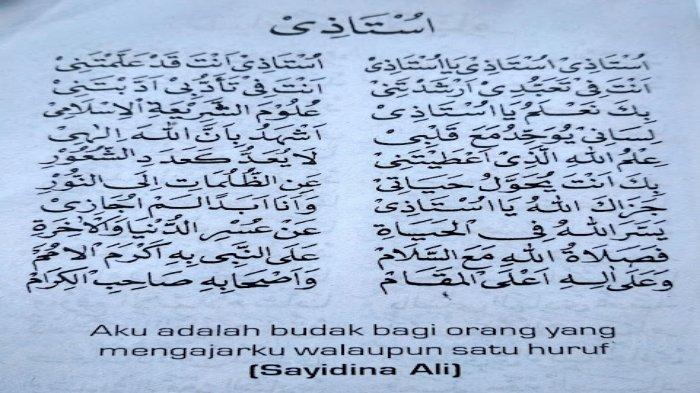 اُسْتَاذِىْ
اُسْتَاذِىْ اُسْتَاذِىْ يَا اُسْتَاذِىْ اُسْتَاذِىْ اَنْتَ قَدْ عَلَّمْتَنِىْ
اَنْتَ فِىْ تَعَبُّدِىْ اَرْشَدْتَنِىْ اَنْتَ فِىْ تَأَدُّبِىْ اَدَّبْتَنِىْ
بِكَ نَعْلَمُ يَا اُسْتَاذِىْ عُلُوْمَ الشَّرِيْعَةِ الْاِسْلَامِىْ
لِسَانِىْ يُوَحِّدُ مَعَ قَلْبِىْ اَشْهَدُ بِاَنَّ اللهَ اِلٰهِىْ
عِلْمُ اللهِ الَّذِىْ اَعْطَيْتَنِىْ لَا يُعَدُّ كَعَدِّ الشُّعُوْرِ
بِكَ اَنْتَ يُحَوَّلُ حَيَاتِىْ عَنِ الظُّلُمَاتِ اِلَى النُّوْرِ
جَزَاكَ اللهُ يَا اُسْتَاذِىْ وَاَنَا اَبَدًا لَمْ اُجَازِىْ
يَسَّرَ اللهُ فِى الْحَيَاةِ عَنْ عُسْرِ الدُّنْيَا وَالْاٰخِرَةِ
فَصَلَاةُ اللهِ مَعَ السَّلَامْ عَلَى النَّبِى بِهِ اَكْرَمَ الْاُمَمْ
وَعَلَى اٰلِهِ اَعْلَى الْمَقَامْ وَاَصْحَابِهِ صَاحِبِ الْكِرَامْ
Aku adalah budak bagi orang yang
mengajarku walaupun satu huruf
(Sayidina Ali)